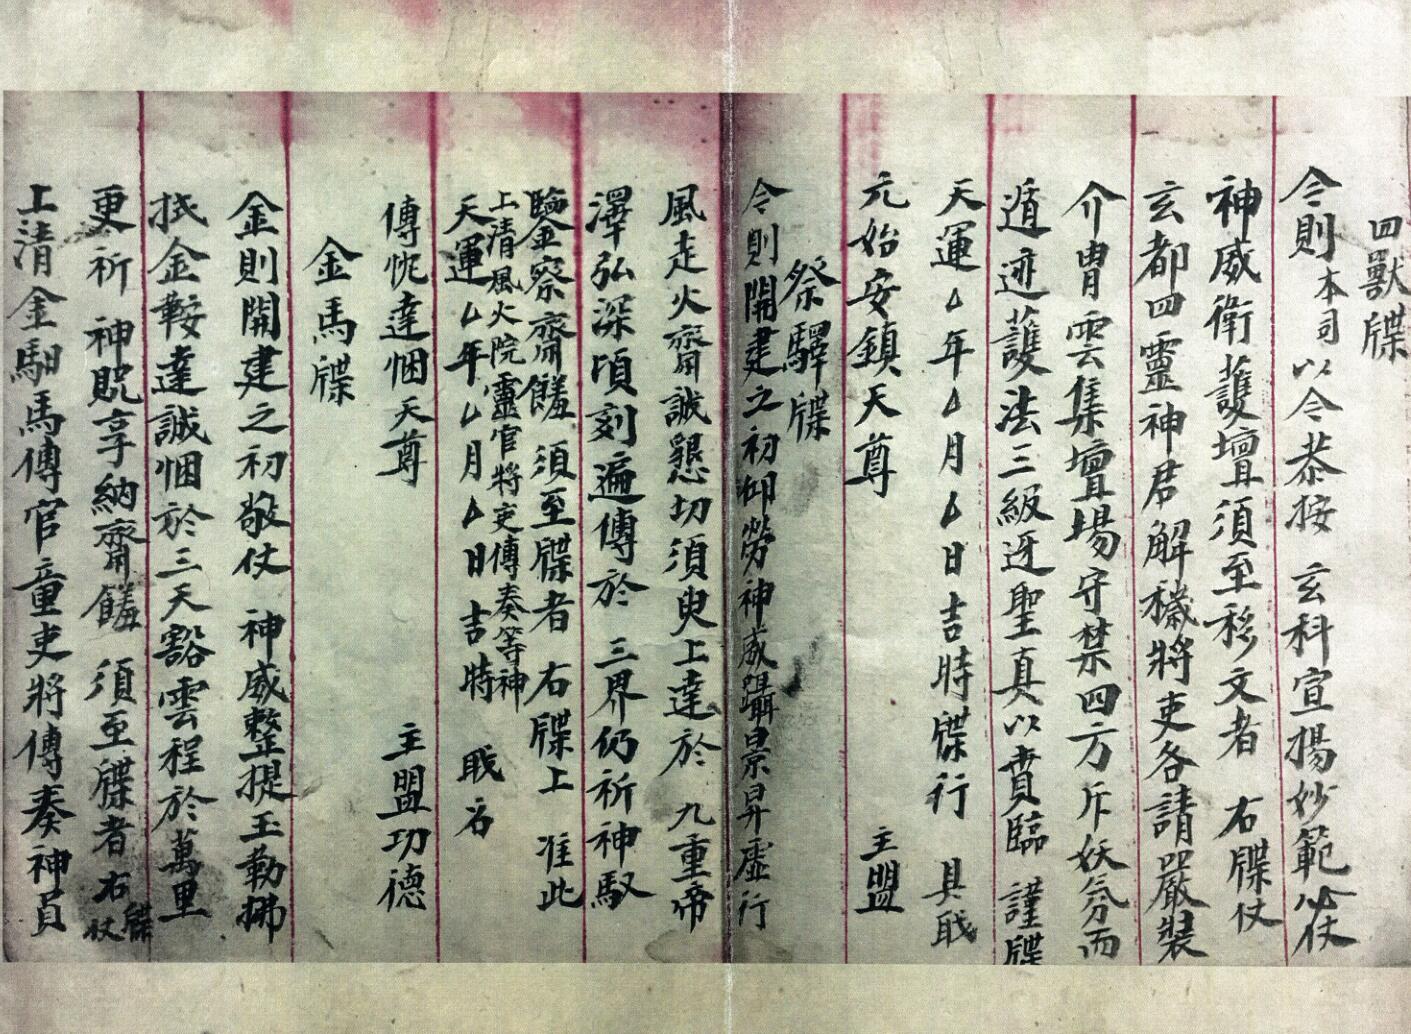 四獸牒
今則本司以令恭按 玄科宣揚妙範必仗
神威衛護壇須至移文者 右牒仗
玄都四靈神君解穢將吏各請嚴裝
介冑雲集壇場守禁四方斥妖氛而
遁迹護法三級迓聖真以賁臨 謹牒
天運厶年厶月厶日吉時牒行 具戢
元始安鎮天尊 主盟
祭驛牒
今則開建之初仰勞神威躡景昇虛行
風走火齋誠懇切須臾上達於 九重帝
澤弘深頃刻遍傳於 三界仍祈神馭
鑒察齋饈 須至牒者 右牒上 准此
上清風火院靈官將吏傳奏等神
天運厶年厶月厶日 吉時 戢名
傳忱達悃天尊 主盟功德
金馬牒
金則開建之初敬仗 神威整提玉勒挪
抵金鞍達誠悃於三天豁雲程於萬里
更祈 神貺享納齋饈 須至牒者右牒仗
上清金馹馬傳官童吏將傳奏神員